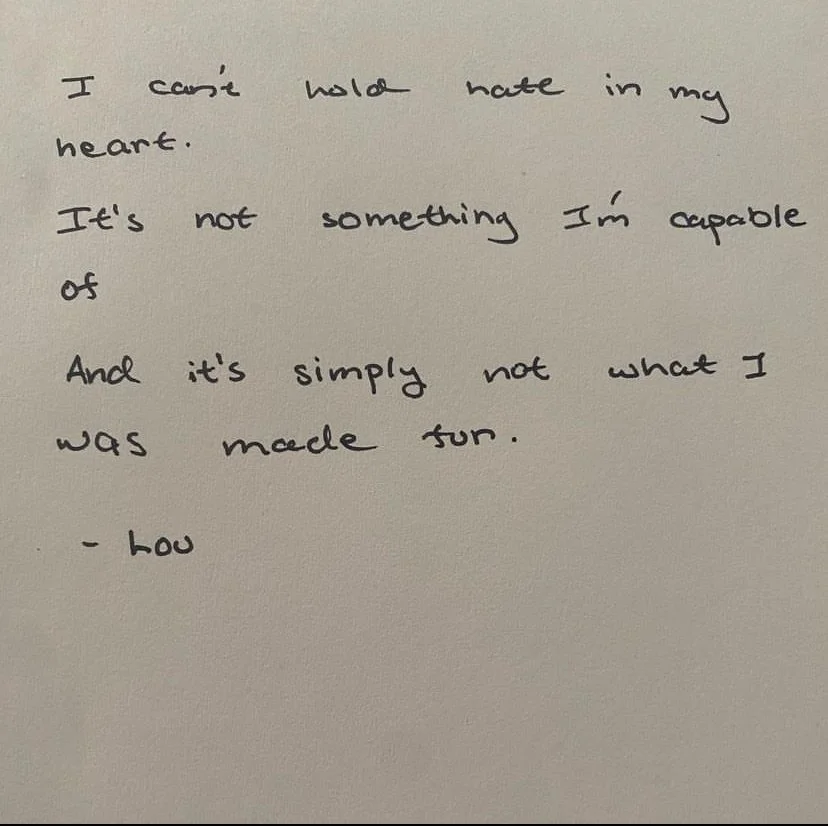 I can't hold hate in my
heart.
It's not something I'm capable
of
And it's simply not what I
was made for.
- Lou